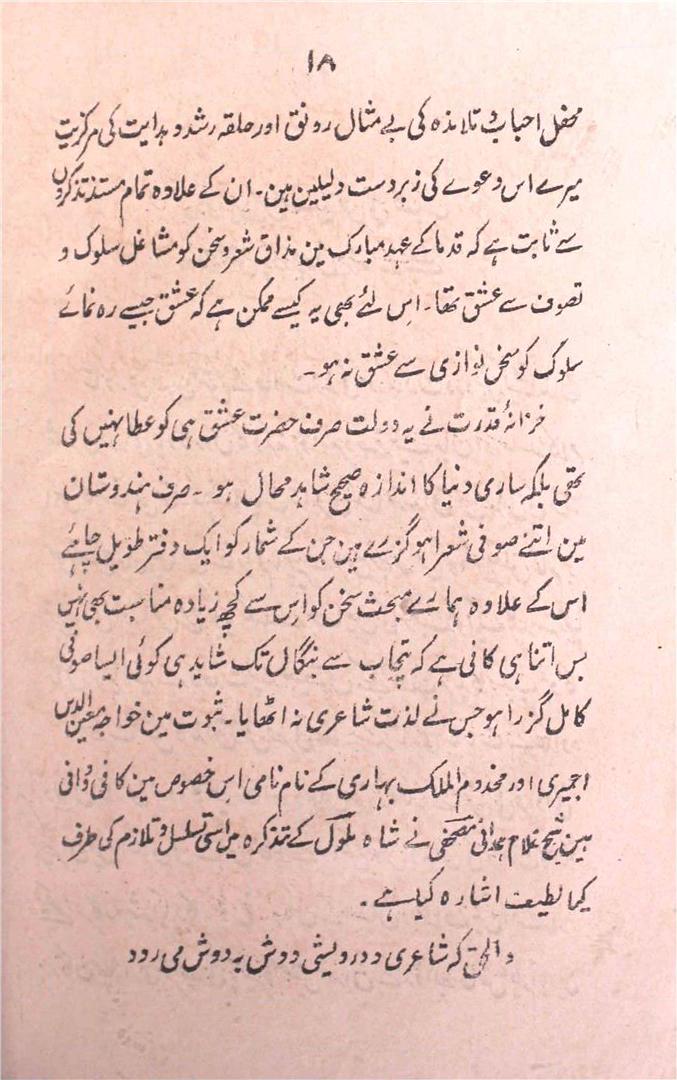 ۱۸
محفل احباب و تلامذہ کی بے مثال رونق اور حلقہ رشد و ہدایت کی مرکزیت
میرے اس دعوے کی زبردست دلیلین ہین۔ ان کے علاوہ تمام مستند تذکروں
سے ثابت ہے کہ قدما کے عہد مبارک مین مذاق شعر و سخن کو مشاغل سلوک و
تصوف سے عشق تھا۔ اس لئے بھی یہ کیسے ممکن ہے کہ عشق جیسے رہ نمائے
سلوک کو سخن نوازی سے عشق نہ ہو۔
خزانۂ قدرت نے یہ دولت صرف حضرت عشق ہی کو عطا نہیں کی
تھی بلکہ ساری دنیا کا اندازہ صحیح شاید محال ہو۔ صرف ہندوستان
مین اتنے صوفی شعرا ہو گزرے ہین جن کے شمار کو ایک دفتر طویل چاہئے
اس کے علاوہ ہمارے مبحث سخن کو اس سے کچھ زیادہ مناسبت بھی نہیں
بس اتنا ہی کافی ہے کہ پنجاب سے بنگال تک شاید ہی کوئی ایسا صوفی
کامل گزرا ہو جس نے لذت شاعری نہ اٹھایا۔ ثبوت مین خواجہ معین الدین
اجمیری اور مخدوم الملک بہاری کے نام نامی اس خصوص مین کافی و وافی
ہین شیخ غلام ہمدانی مصحفی نے شاہ ملوک کے تذکرہ میں اسی تسلسل و تلازم کی طرف
کیا لطیف اشارہ کیا ہے۔
والحق کہ شاعری و درویشی دوش بہ دوش می رود